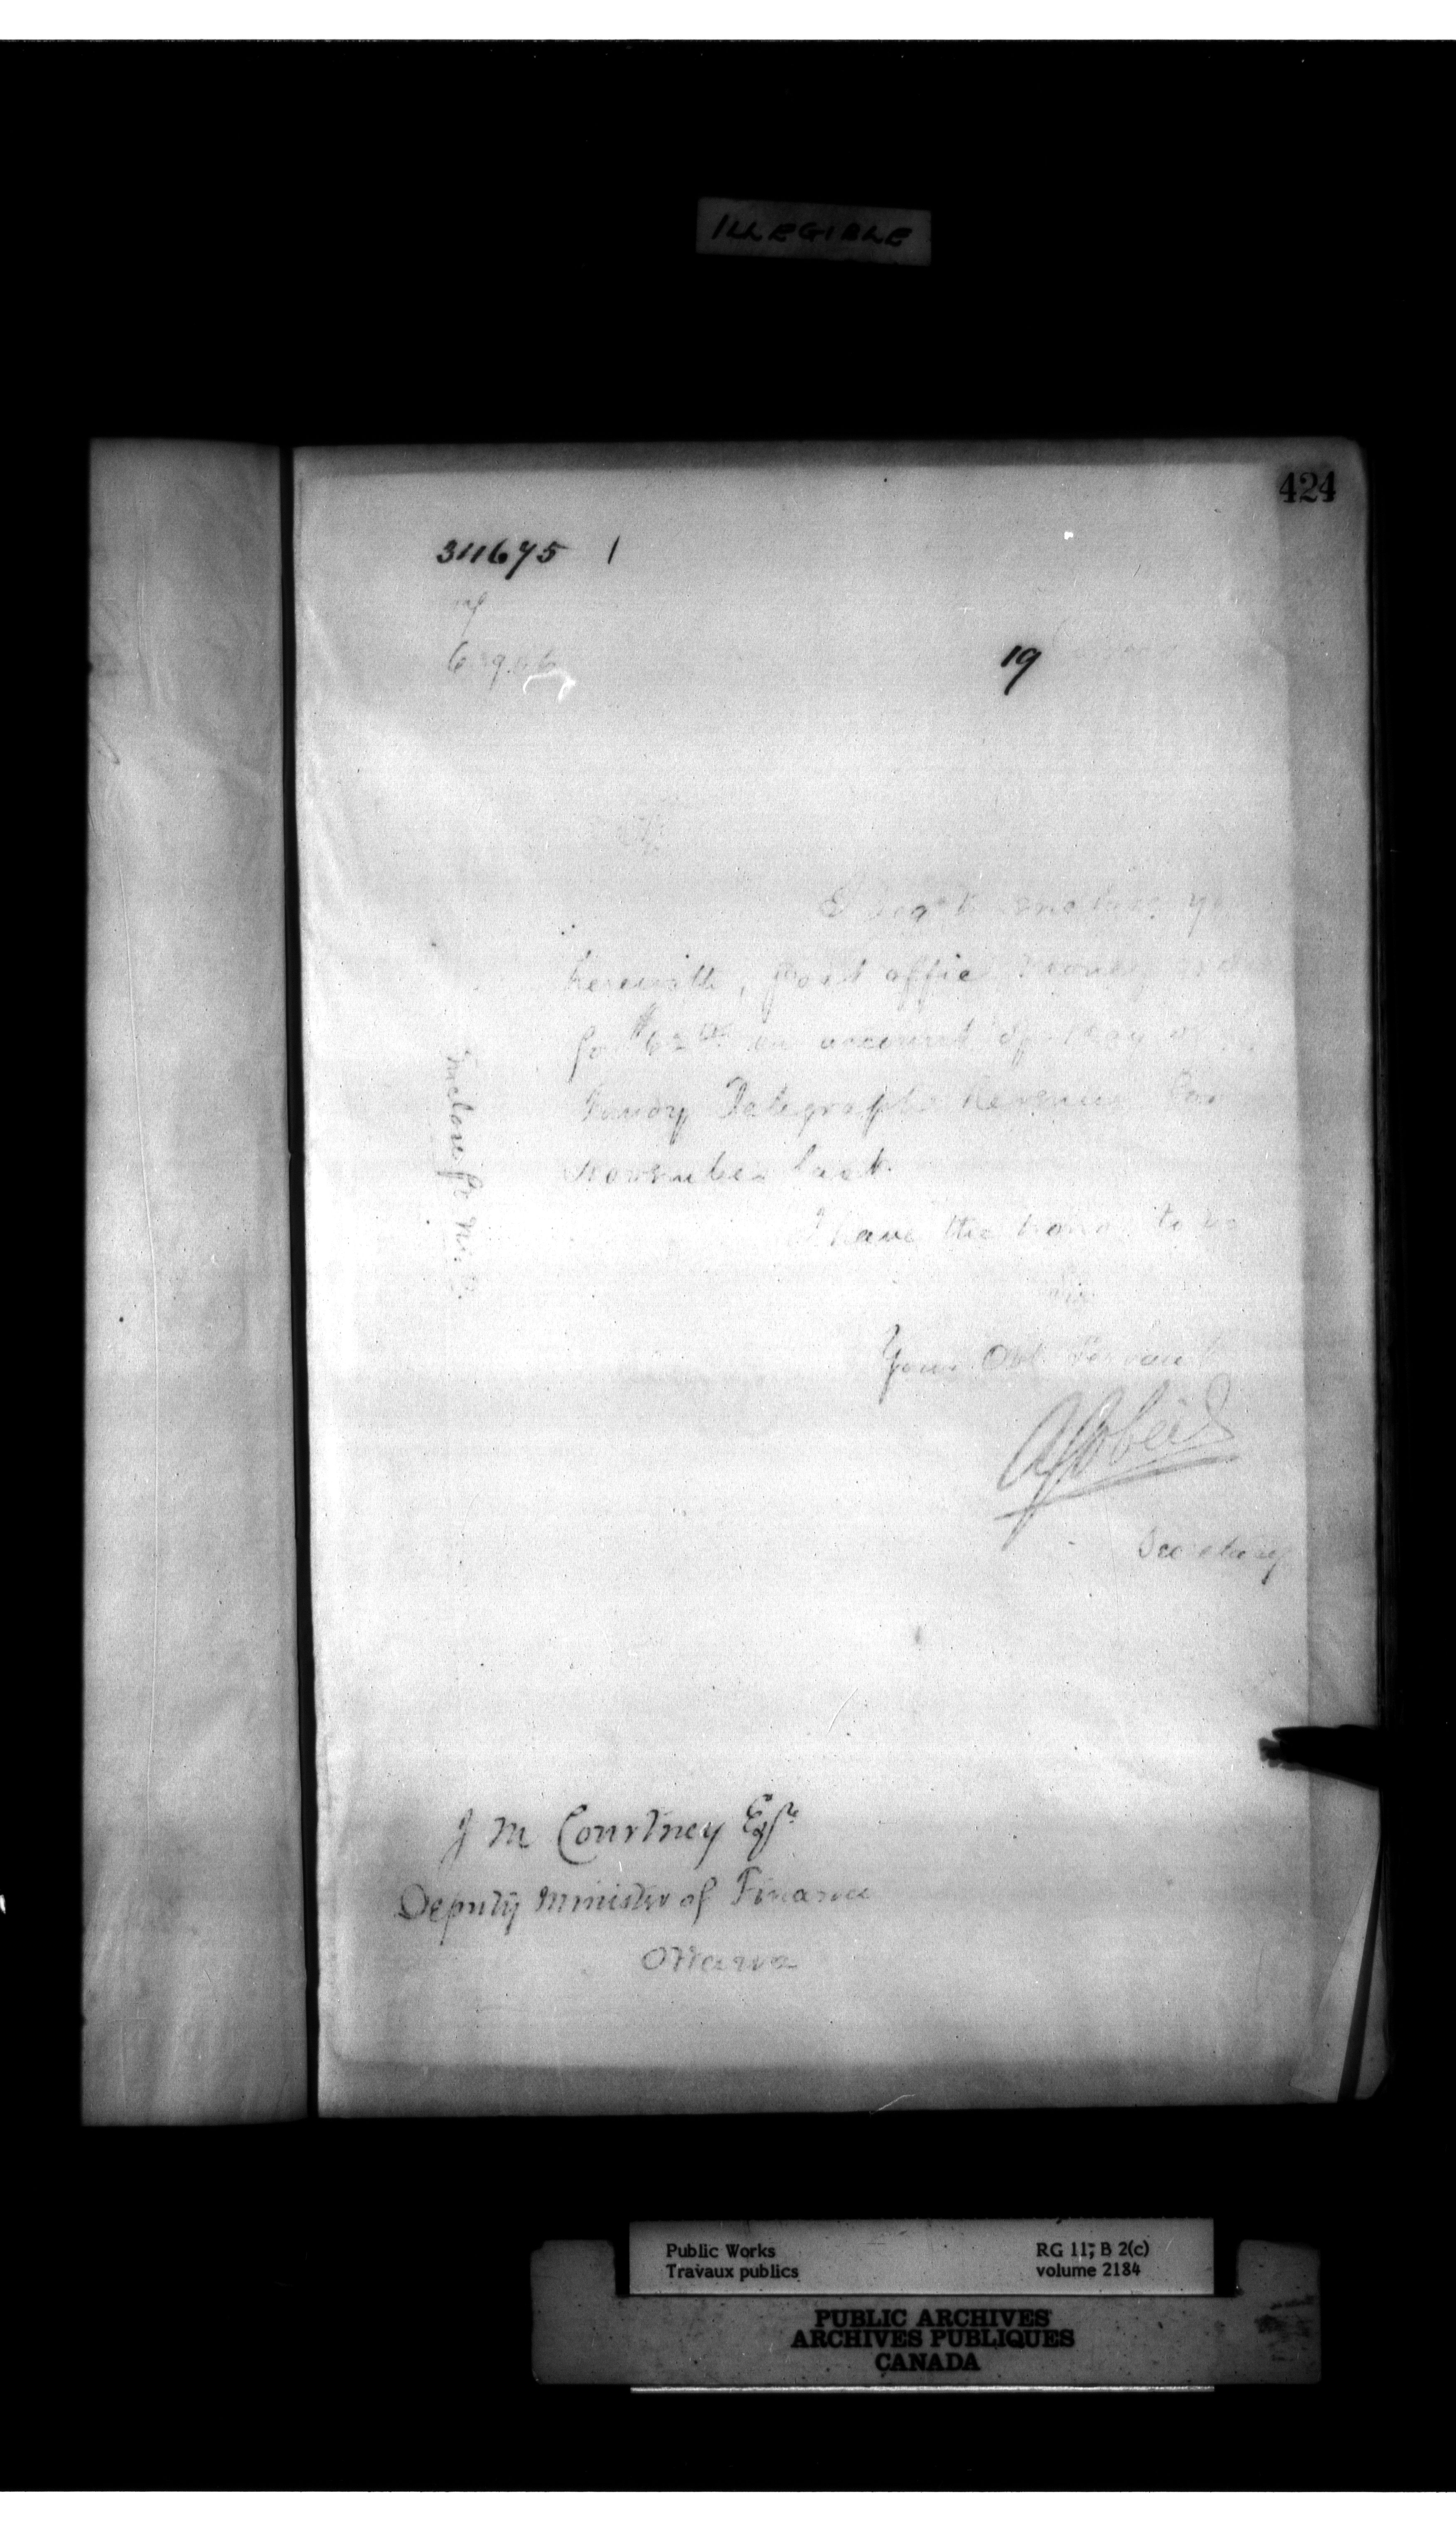 ILLEGIBLE
424
311675 1
19
Sir
I beg to enclose
herewith, Post office money
for $62 on account of Bay of
Fundy Telegraph Revenue for
November last.
I have the honor to be
Sir
Your Obt. Servant
Secretary
J M Courtney Esq
Deputy Minister of Finance
Ottawa
Public Works RG 11, B 2(c)
Travaux publics volume 2184
PUBLIC ARCHIVES
ARCHIVES PUBLIQUES
CANADA